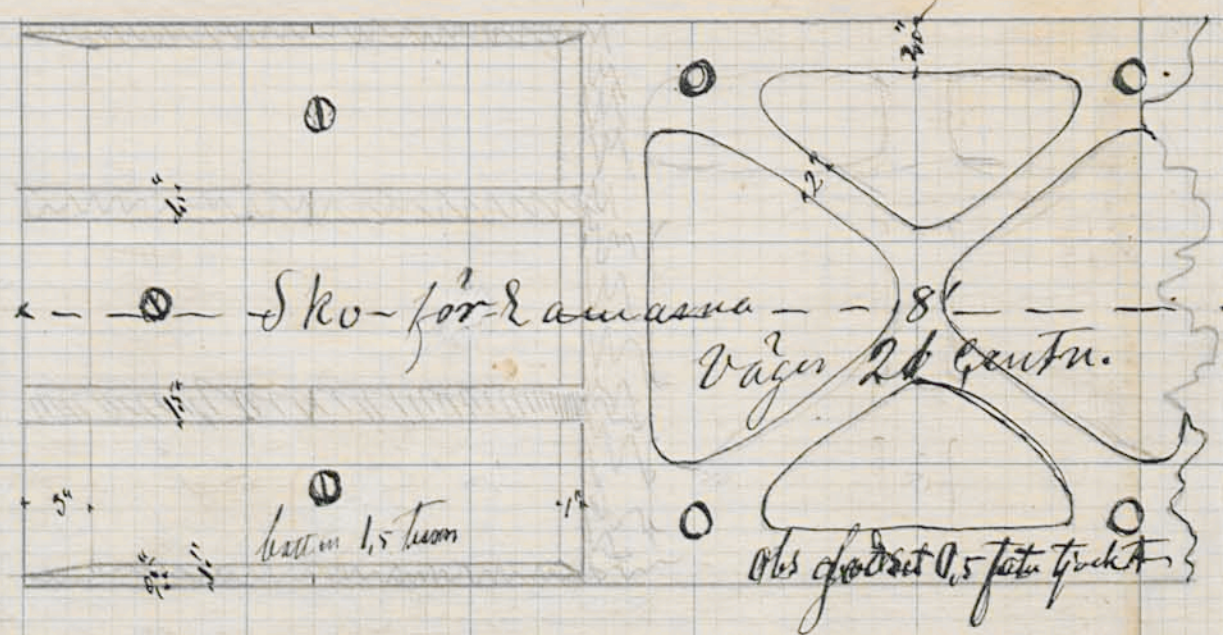 2"
2"
Sko för Ramarna
8
Väger 21 Centn.
1,5"
3"
1"
botten 1,5 tum
Obs godset 0,5 fots tjockt